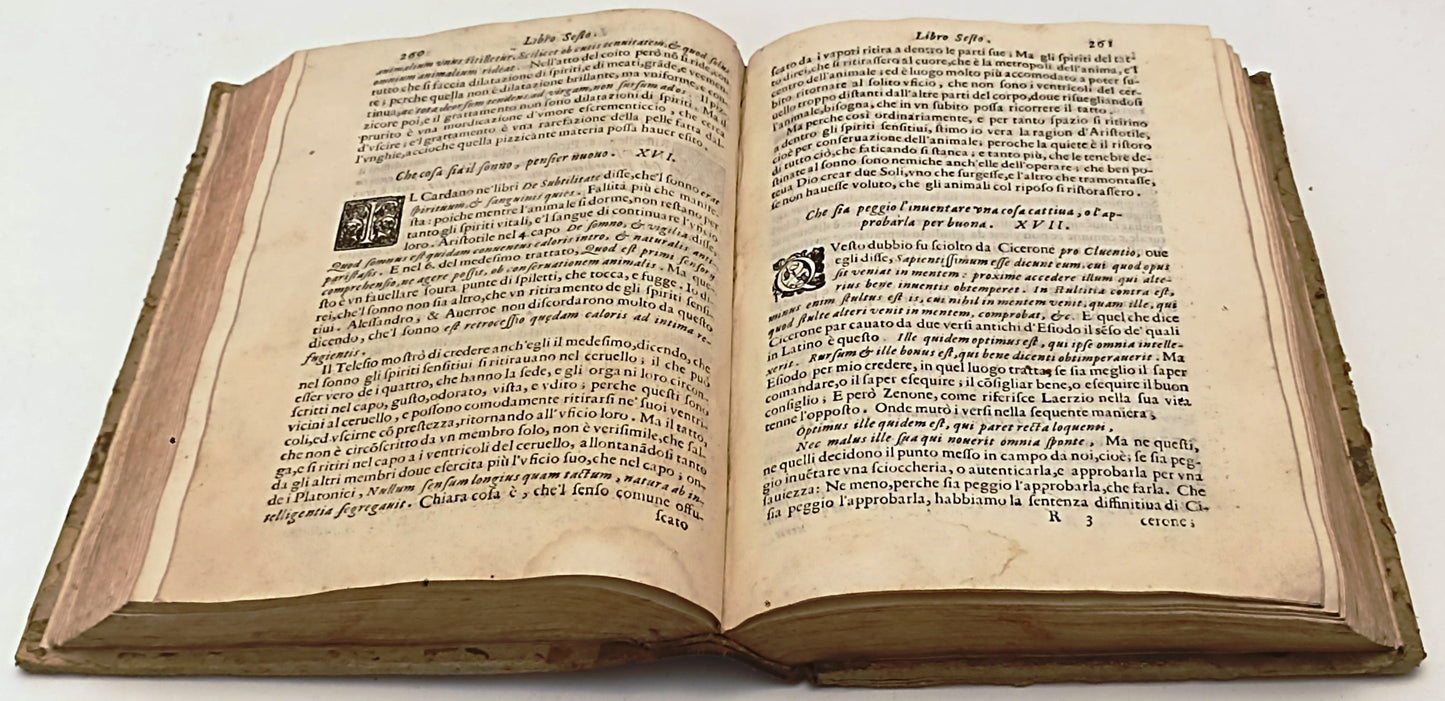 260
Libro Sesto.
animalium vnus titilletur. Scilicet ob cutis tenuitatem, & quod solus
omnium animalium rideat. Nell'atto del coito però nõ si ride, con
tutto che si faccia dilatazione di spiriti, e di meati, grãde, e veemen-
te; perche quella non è dilatazione brillante, ma vniforme, e con-
tinua, ac tota deorsum tendens ad virgam, non sursum ad os. Il piz-
zicore poi, e il grattamento non sono dilatazioni di spiriti. Ma il
prurito è vna mordicazione d'vmore escrementiccio, che cerca
d'vscire; e'l grattamento è vna rarefazione della pelle fatta dal-
l'vnghie, accioche quella pizzicante materia possa hauer esito.
Che cosa sia il sonno, pensier nuouo. XVI.
IL Cardano ne' libri De Subtilitate disse, che'l sonno erat
spirituum, & sanguinis quies. Falsità più che manife-
sta: poiche mentre l'animale si dorme, non restano per
tanto gli spiriti vitali, e'l sangue di continuare l'vficio
loro. Aristotile nel 4. capo De somno, & vigilia disse,
Quod somnus est quidam conuentus caloris intro, & naturalis anti-
paristasis. E nel 6. del medesimo trattato, Quod est primi sensorij
comprehensio, ne agere possit, ob conseruationem animalis. Ma que-
sto è vn fauellare soura punte di spiletti, che tocca, e fugge. Io di-
rei, che'l sonno non sia altro, che vn ritiramento de gli spiriti sensi-
tiui. Alessandro, & Auerroe non discordarono molto da questo
dicendo, che'l sonno est retrocessio quędam caloris ad intima re-
fugientis.
Il Telesio mostrò di credere anch'egli il medesimo, dicendo, che
nel sonno gli spiriti sensitiui si ritirauano nel ceruello; il che può
esser vero de i quattro, che hanno la sede, e gli organi loro circon-
scritti nel capo, gusto, odorato, vista, e vdito; perche questi sono
vicini al ceruello, e possono comodamente ritirarsi ne' suoi ventri-
coli, ed vscirne cõ prestezza, ritornando all'vficio loro. Ma il tatto,
che non è circõscritto da vn membro solo, non è verisimile, che sal-
ga, e si ritiri nel capo a i ventricoli del ceruello, allontanãdosi tanto
da gli altri membri doue esercita più l'vficio suo, che nel capo; on-
de i Platonici, Nullum sensum longius quam tactum, natura ab in-
telligentia segregauit. Chiara cosa è, che'l senso comune offu-
scato
Libro Sesto.
261
scato da i vapori ritira a dentro le parti sue; Ma gli spiriti del tat-
to direi, che si ritirassero al cuore, che è la metropoli dell'anima, e'l
centro dell'animale; ed è luogo molto più accomodato a poter su-
bito ritornare al solito vficio, che non sono i ventricoli del cer-
uello troppo distanti dall'altre parti del corpo, doue risuegliandosi
l'animale, bisogna, che in vn subito possa ricorrere il tatto.
Ma perche così ordinariamente, e per tanto spazio si ritirino
a dentro gli spiriti sensitiui, stimo io vera la ragion d'Aristotile,
cioè per conseruazione dell'animale; peroche la quiete è il ristoro
di tutto ciò, che faticando si stanca; e tanto più, che le tenebre de-
stinate al sonno sono nemiche anch'elle dell'operare; che ben po-
teua Dio crear due Soli, vno che surgesse, e l'altro che tramontasse,
se non hauesse voluto, che gli animali col riposo si ristorassero.
Che sia peggio l'inuentare vna cosa cattiua, o l'ap-
probarla per buona. XVII.
QVesto dubbio fu sciolto da Cicerone pro Cluentio, oue
egli disse, Sapientissimum esse dicunt eum, cui quod opus
sit veniat in mentem: proxime accedere illum qui alte-
rius bene inuentis obtemperet. In stultitia contra est,
minus enim stultus est is, cui nihil in mentem venit, quam ille, qui
quod stulte alteri venit in mentem, comprobat, &c. E quel che dice
Cicerone par cauato da due versi antichi d'Esiodo il sẽso de' quali
in Latino è questo. Ille quidem optimus est, qui ipse omnia intelle-
xerit. Rursum & ille bonus est, qui bene dicenti obtimperauerit. Ma
Esiodo per mio credere, in quel luogo tratta, se sia meglio il saper
comandare, o il saper esequire; il cõsigliar bene, o esequire il buon
consiglio; E però Zenone, come riferisce Laerzio nella sua vita
tenne l'opposto. Onde mutò i versi nella sequente maniera;
Optimus ille quidem est, qui paret recta loquenti,
Nec malus ille sua qui nouerit omnia sponte, Ma ne questi,
ne quelli decidono il punto messo in campo da noi, cioè; se sia peg-
gio inuẽtare vna scioccheria, o autenticarla, e approbarla per vna
sauiezza: Ne meno, perche sia peggio l'approbarla, che farla. Che
sia peggio l'approbarla, habbiamo la sentenza diffinitiua di Ci-
R 3
cerone;